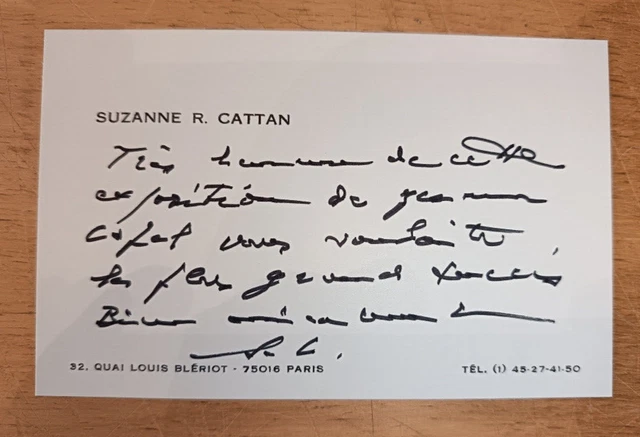 SUZANNE R. CATTAN
Très heureuse de cette
exposition de
vous souhaite
le plus grand succès
Bien amicalement
S. C.
32, QUAI LOUIS BLÉRIOT - 75016 PARIS
TÉL. (1) 45-27-41-50